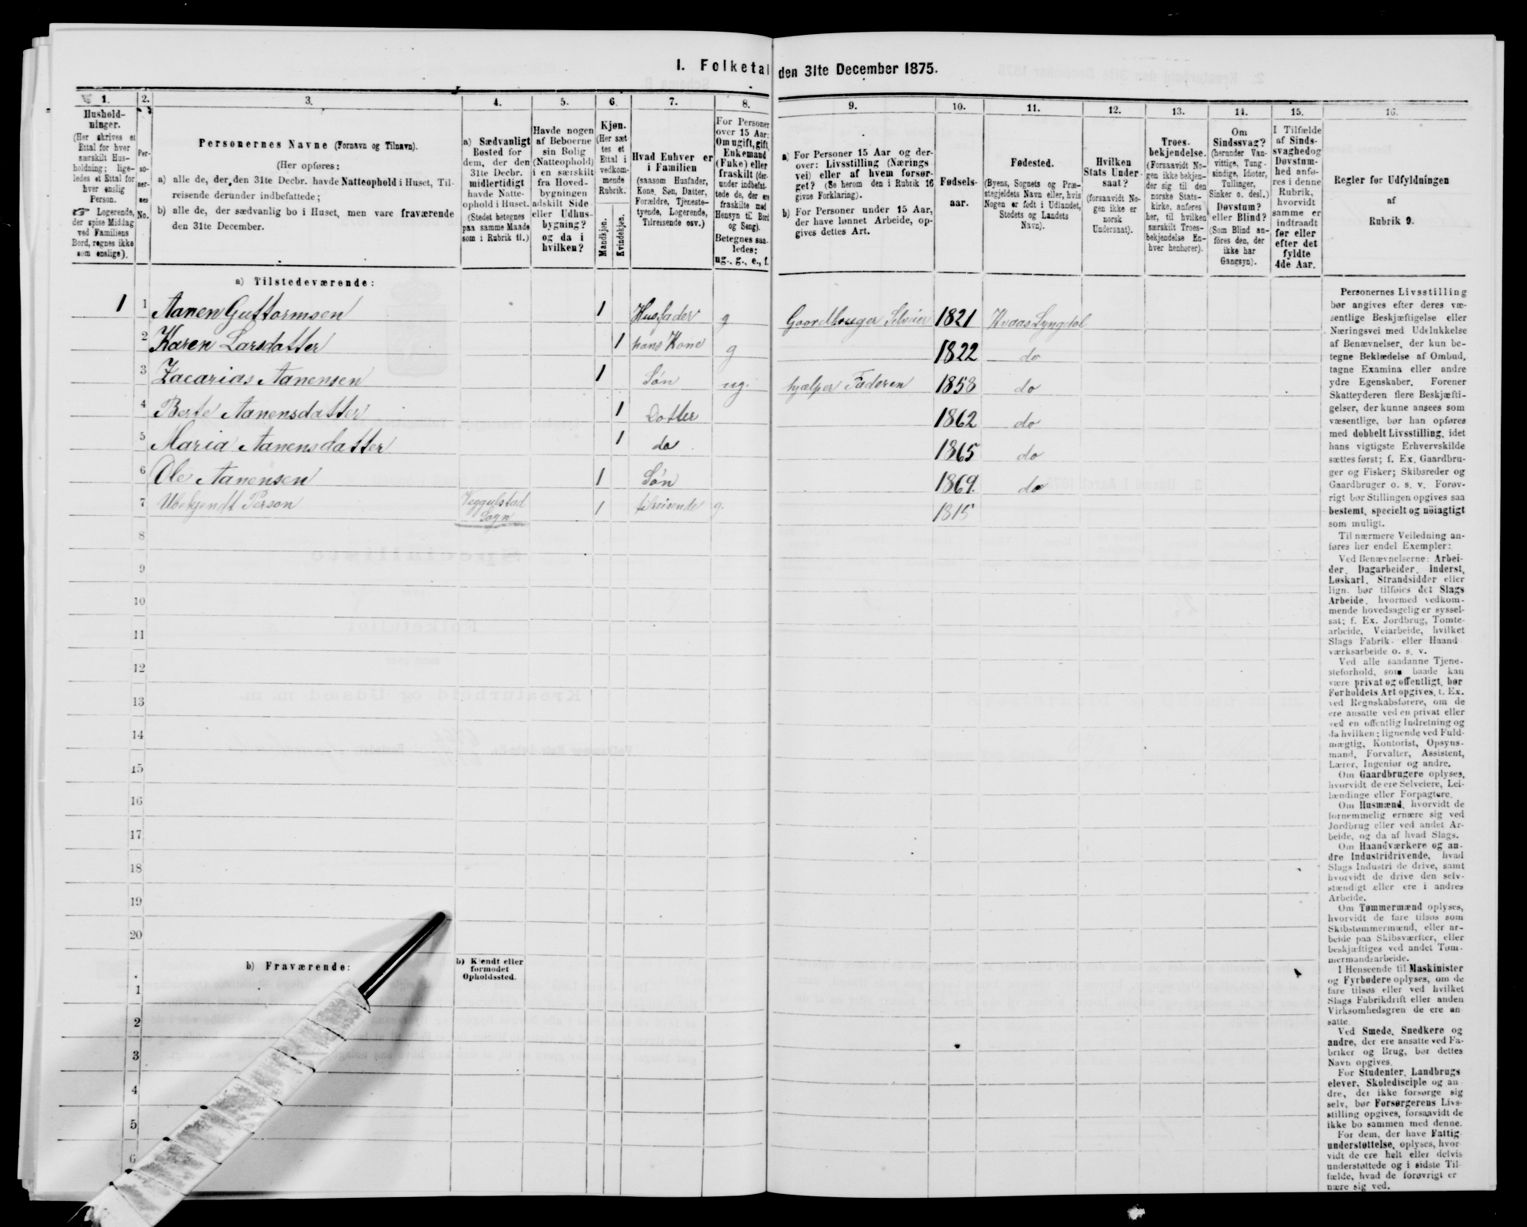 I. Folketal den 31te December 1875.
1. 2. 3. 4. 5. 6. 7. 8. 9. 10. 11. 12. 13. 14. 15. 16.
Hushold-
ninger.
(Her skrives et
Ettal for hver
særskilt Hus-
holdning; lige-
ledes et Ettal for
hver enslig
Person.
☞ Logerende,
der spise Middag
ved Familiens
Bord, regnes ikke
som enslige).
Per-
so-
ner-
nes
No.
Personernes Navne (Fornavn og Tilnavn).
(Her opføres:
a) alle de, der den 31te Decbr. havde Natteophold i Huset, Til-
reisende derunder indbefattede;
b) alle de, der sædvanlig bo i Huset, men vare fraværende
den 31te December.
a) Sædvanligt
Bosted for
dem, der den
31te Decbr.
midlertidigt
havde Natte-
ophold i Huset.
(Stedet betegnes
paa samme Maade
som i Rubrik 11.)
Havde nogen
af Beboerne
sin Bolig
(Natteophold)
i en særskilt
fra Hoved-
bygningen
adskilt Side
eller Udhus-
bygning?
og da i
hvilken?
Kjøn.
(Her sæt
tes et
Ettal i
vedkom-
mende
Rubrik.
Mandkjøn.
Kvindekjøn.
Hvad Enhver er
i Familien
(saasom Husfader,
Kone, Søn, Datter,
Forældre, Tjeneste-
tyende, Logerende,
Tilreisende osv.)
For Personer
over 15 Aar:
Om ugift, gift,
Enkemand
(Enke) eller
fraskilt (der-
under indbefat-
tede de, der ere
fraskilte med
Hensyn til Bord
og Seng).
Betegnes saa-
ledes:
ug., g., e., f.
a) For Personer 15 Aar og der-
over: Livsstilling (Nærings
vei) eller af hvem forsør-
get? (Se herom den i Rubrik 16
givne Forklaring).
b) For Personer under 15 Aar,
der have lønnet Arbeide, op-
gives dettes Art.
Fødsels-
aar.
Fødested.
(Byens, Sognets og Præ-
stegjeldets Navn eller, hvis
Nogen er født i Udlandet,
Stedets og Landets
Navn).
Hvilken
Stats Under-
saat?
(forsaavidt No-
gen ikke er
norsk
Undersaat).
Troes-
bekjendelse.
(Forsaavidt No-
gen ikke bekjen-
der sig til den
norske Stats-
kirke, anføres
her, til hvilken
særskilt Troes-
bekjendelse En-
hver henhører).
Om
Sindssvag?
(herunder Van-
vittige, Tung-
sindige, Idioter,
Tullinger,
Sinker o. desl.)
Døvstum?
eller Blind?
(Som Blind an-
føres den, der
ikke har
Gangsyn).
I Tilfælde
af Sinds-
svaghedog
Døvstum-
hed anfø-
res i denne
Rubrik,
hvorvidt
samme er
indtraadt
før eller
efter det
fyldte
4de Aar.
Regler før Udfyldningen
af
Rubrik 9.
a) Tilstedeværende:
1 1 Aanen Guttormsen 1 Husfader g Gaardbruger Selveier 1821 Kvaas Lyngdal
2 Karen Larsdatter 1 hans Kone g 1822 do
3 Zacarias Aanensen 1 Søn ug. hjælper Faderen 1858 do
4 Berte Aanensdatter 1 Dotter 1862 do
5 Maria Aanensdatter 1 do 1865 do
6 Ole Aanensen 1 Søn 1869. do
7 Ubekjendt Person Sogn 1 tilreisende g. 1815
8
9
10
11
12
13
14
15
16
17
18
19
20
b) Fraværende: b) Kjendt eller
formodet
Opholdssted.
1
2
3
4
5
6
Personernes Livsstilling
bør angives efter deres væ-
sentlige Beskjæftigelse eller
Næringsvei med Udelukkelse
af Benævnelser, der kun be-
tegne Beklædelse af Ombud,
tagne Examina eller andre
ydre Egenskaber. Forener
Skatteyderen flere Beskjæfti-
gelser, der kunne ansees som
væsentlige, bør han opføres
med dobbelt Livsstilling, idet
hans vigtigste Erhvervskilde
sættes først; f. Ex. Gaardbru-
ger og Fisker; Skibsreder og
Gaardbruger o. s. v. Forøv-
rigt bør Stillingen opgives saa
bestemt, specielt og nøiagtigt
som muligt.
Til nærmere Veiledning an-
føres her endel Exempler:
Ved Benævnelserne: Arbei-
der, Dagarbeider, Inderst,
Løskarl, Strandsidder eller
lign. bør tilføies det Slags
Arbeide, hvormed vedkom-
mende hovedsagelig er syssel-
sat; f. Ex. Jordbrug, Tomte-
arbeide, Veiarbeide, hvilket
Slags Fabrik- eller Haand
værksarbeide o. s. v.
Ved alle saadanne Tjene-
steforhold, som baade kan
være privat og offentligt, bør
Forholdets Art opgives, t. Ex.
ved Regnskabsførere, om de
ere ansatte ved en privat eller
ved en offentlig Indretning og
da hvilken; lignende ved Fuld-
mægtig, Kontorist, Opsyns-
mand, Forvalter, Assistent,
Lærer, Ingeniør og andre.
Om Gaardbrugere oplyses,
hvorvidt de ere Selveiere, Lei-
lændinge eller Forpagtere.
Om Husmænd, hvorvidt de
fornemmelig ernære sig ved
Jordbrug eller ved andet Ar-
beide, og da af hvad Slags.
Om Haandværkere og an-
dre Industridrivende, hvad
Slags Industri de drive, samt
hvorvidt de drive den selv-
stændigt eller ere i andres
Arbeide.
Om Tømmermænd oplyses,
hvorvidt de fare tilsøs som
Skibstømmermænd, eller ar-
beide paa Skibsværfter, eller
beskjæftiges ved andet Tøm-
mermandsarbeide.
I Henseende til Maskinister
og Fyrbødere oplyses, om de
fare tilsøs eller ved hvilket
Slags Fabrikdrift eller anden
Virksomhedsgren de ere an
satte.
Ved Smede, Snedkere og
andre, der ere ansatte ved Fa-
briker og Brug, bør dettes
Navn opgives.
For Studenter, Landbrugs
elever, Skoledisciple og an
dre, der ikke forsørge sig
selv, bør Forsørgerens Livs-
stilling opgives, forsaavidt de
ikke bo sammen med denne.
For dem, der have Fattig
understøttelse, oplyses, hvor
vidt de ere helt eller delvis
understøttede og i sidste Til-
fælde, hvad de forøvrigt er
nære sig ved.